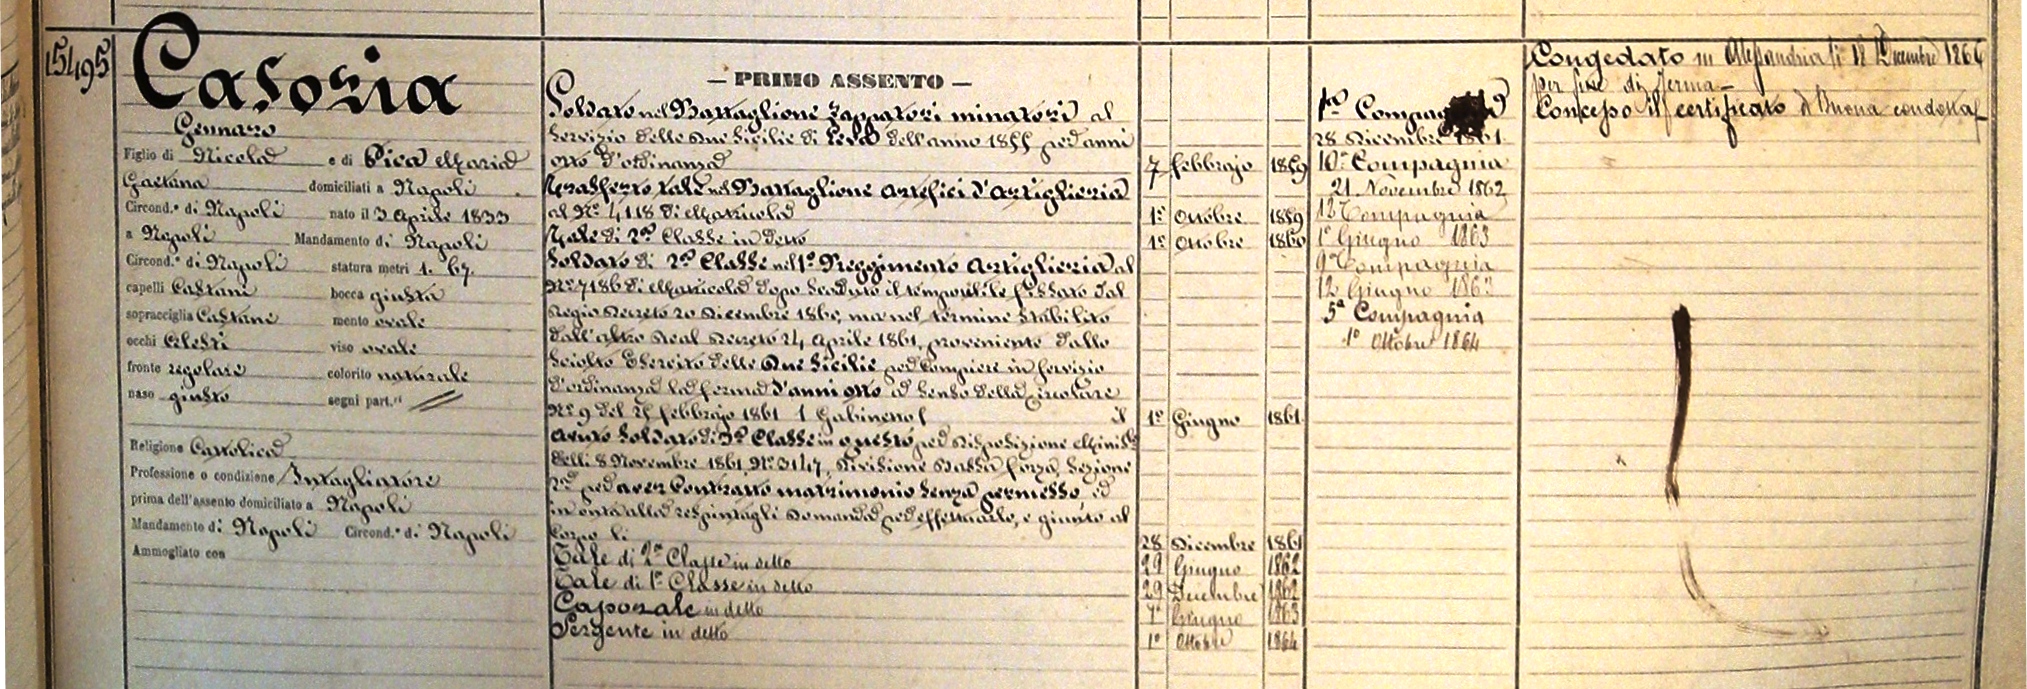 15495
Casoria
Gennaro
Figlio di Nicola e di Pica Maria
Gaetana domiciliati a Napoli
Circond.º di Napoli nato il 3 Aprile 1833
a Napoli Mandamento di Napoli
Circond.º di Napoli statura metri 1. 67.
capelli Castani bocca giusta
sopracciglia Castane mento ovale
occhi Celesti viso ovale
fronte regolare colorito naturale
naso giusto segni part.ri //
Religione Cattolica
Professione o condizione Intagliatore
prima dell'assento domiciliato a Napoli
Mandamento di Napoli Circond.º di Napoli
Ammogliato con
— PRIMO ASSENTO —
Soldato nel Battaglione Zappatori minatori al
Servizio delle Due Sicilie di Leva dell'anno 1855 per anni
otto d'ordinanza 7 Febbrajo 1859
Trasferto tale nel Battaglione Artefici d'Artiglieria
al Nº 4118 di Matricola 1º Ottobre 1859
Tale di 2ª Classe in detto 1º Ottobre 1860
Soldato di 2ª Classe nel 1º Reggimento Artiglieria al
Nº 7186 di Matricola dopo scaduto il tempo utile fissato dal
Regio Decreto 20 Dicembre 1860, ma nel termine stabilito
dall'altro Real Decreto 24 Aprile 1861, proveniente dallo
Sciolto Esercito delle Due Sicilie per compiere in servizio
d'ordinanza la ferma d'anni otto a senso della Circolare
Nº 9 del 25 Febbrajo 1861 ( Gabinetto ) il 1º Giugno 1861
Avuto Soldato di 3ª Classe in questo per Disposizione Minist.
delli 8 Novembre 1861, Nº 3147, Divisione Bassa forza, Sezione
2ª per aver Contratto matrimonio senza permesso, ed
in onta alla respintagli Domanda per effettuarlo, e giunto al
Corpo li 28 Dicembre 1861
Tale di 2ª Classe in detto 29 Giugno 1862
Tale di 1ª Classe in detto 29 Dicembre 1862
Caporale in detto 7 Giugno 1863
Sergente in detto 1º Ottobre 1864
28 Dicembre 1861.
10ª Compagnia
21 Novembre 1862
12 Compagnia
1º Giugno 1863
9ª Compagnia
12 Giugno 1863
5ª Compagnia
1º Ottobre 1864
Congedato in Alessandria li 12 Dicembre 1864
per fine di ferma —
Concesso il certificato di Buona condotta